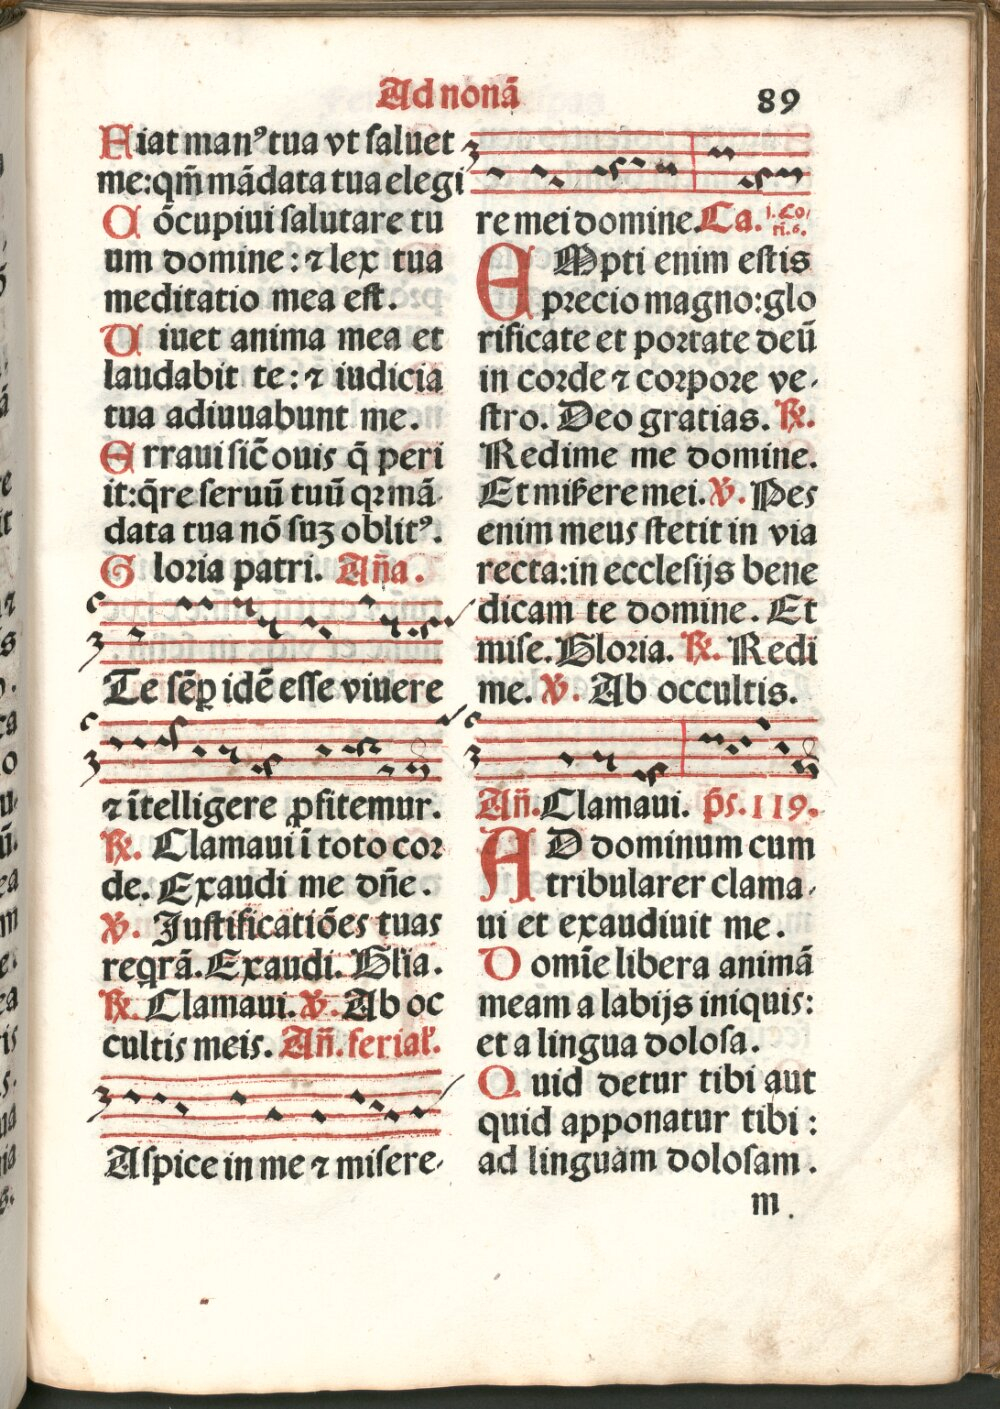 Ad nonã
89
Fiat manꝰ tua vt saluet
me:qm̃ mãdata tua elegi
Cõcupiui salutare tu
um domine: ⁊ lex tua
meditatio mea est.
Uiuet anima mea et
laudabit te: ⁊ iudicia
tua adiuuabunt me.
Erraui sic̃ ouis q̃ peri
it:q̃re seruũ tuũ qꝛ mã
data tua nõ suꝫ oblitꝰ.
Gloria patri. Aña.
Te sẽꝑ idẽ esse viuere
⁊ ĩtelligere ꝓfitemur.
℟. Clamaui ĩ toto coꝛ
de. Exaudi me dñe.
℣. Justificatiões tuas
reqrã. Exaudi. Glĩa.
℟. Clamaui. ℣. Ab oc
cultis meis. Añ. ferial̃.
Aspice in me ⁊ misere-
re mei domine. Ca. 1. Co/
ri. 6.
EMpti enim estis
precio magno:glo
rificate et poꝛtate deũ
in coꝛde ⁊ coꝛpoꝛe ve-
stro. Deo gratias. ℟.
Redime me domine.
Et miserere mei. ℣. Pes
enim meus stetit in via
recta:in ecclesijs bene
dicam te domine. Et
mise. Gloꝛia. ℟. Redi
me. ℣. Ab occultis.
Añ. Clamaui. p̃s. 119.
AD dominum cum
tribularer clama-
ui et exaudiuit me.
Domĩe libera animã
meam a labijs iniquis:
et a lingua dolosa.
Quid detur tibi aut
quid apponatur tibi:
ad linguam dolosam.
m.